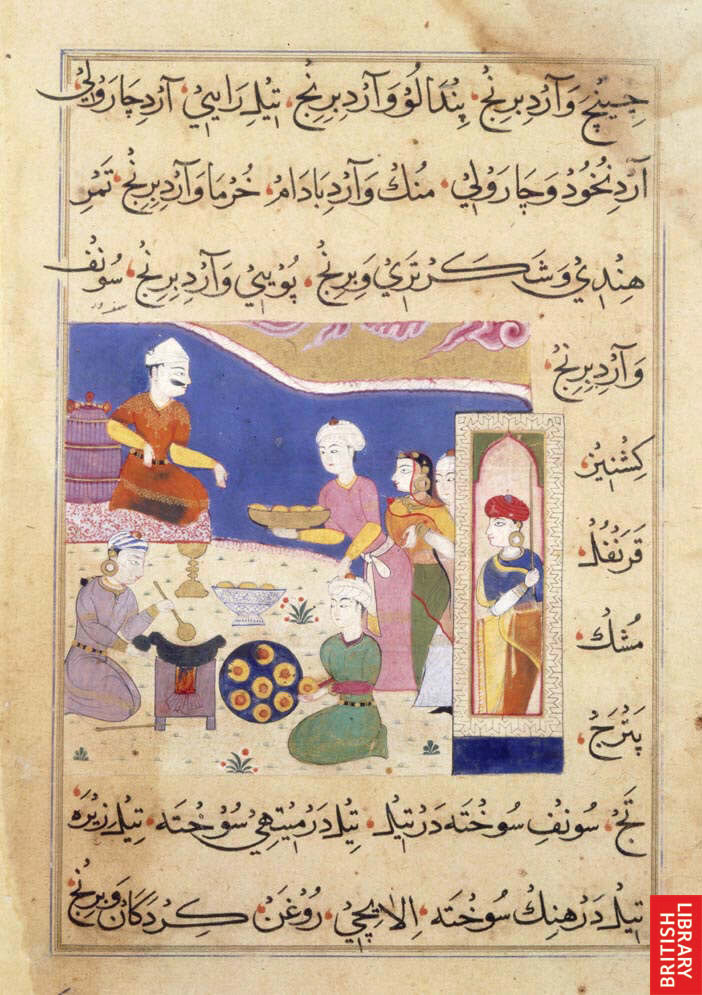 چینچ وَآردِ بِرِنجْ، پِنْدَالُوْ وَ آردِ بِرِنجْ، تیلِ رَایِیْ، آردِ چَارَوْلِيْ
آردِ نُخُودْ وَ چَارَوْلِيْ، مُنك وَ آردِ بَادَامْ، خُرْمَا وَ آردِ بِرِنجْ، تَمْرِ
هِنْدِيْ وَ شَكَرْ تَرِيْ وَ بِرِنجْ، پُوْیِيْ وَ آردِ بِرِنجْ، سُونْفْ
وَ آردِ بِرِنجْ،
كِشْنِیزْ،
قَرَنْفُلْ،
مُشْكْ،
پَتْرَجْ،
تَجْ، سُونْفِ سُوخْتَه دَرْ تیلْ، تیلْ دَرْ مِیْتهِيْ سُوْخْتَه، تیلِ زِیْرَه
تیلْ دَرْ هِنكْ سُوخْتَه، اِلَایِچِيْ، رُوْغَنْ، كِرْدَگَانْ وَ بِرِنجْ
BRITISH LIBRARY